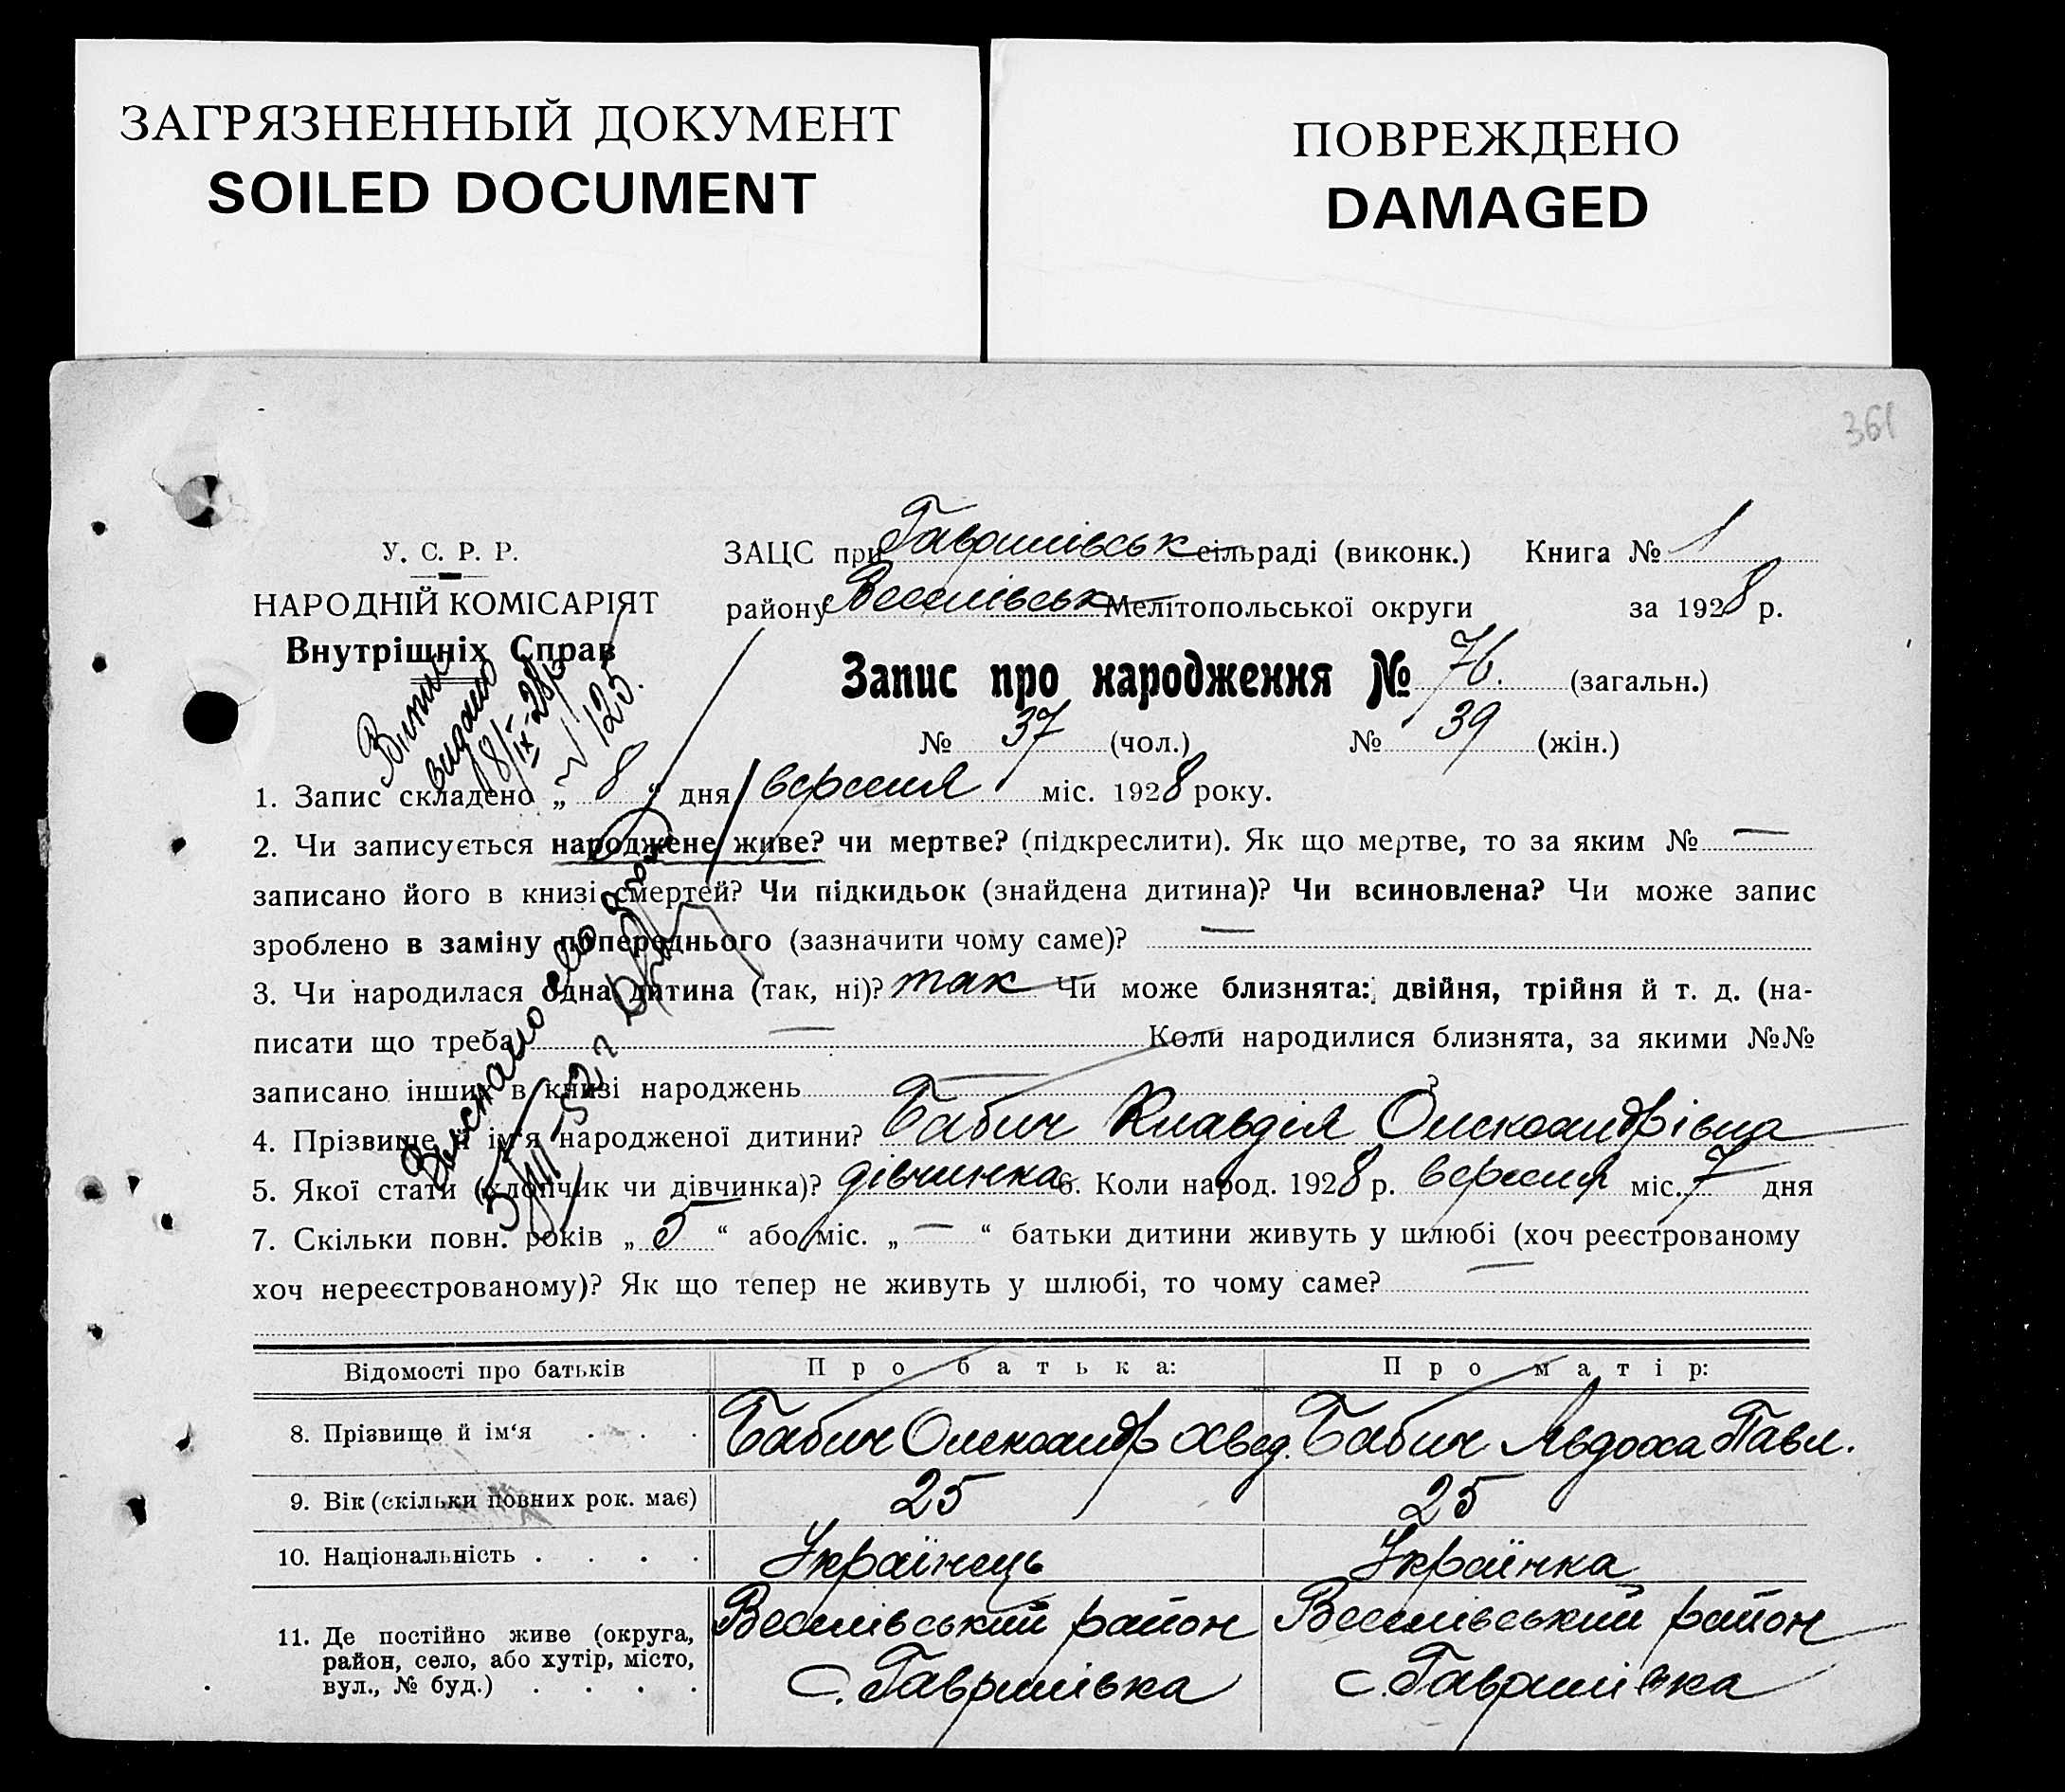 ЗАГРЯЗНЕННЫЙ ДОКУМЕНТ
SOILED DOCUMENT
ПОВРЕЖДЕНО
DAMAGED
361
У. С. Р. Р.
НАРОДНІЙ КОМІСАРІЯТ
Внутрішніх Справ
ЗАЦС при Гаврилівськ сільраді (виконк.) Книга № 1
району Веселівськ Мелітопольської округи за 1928 р.
Запис про народження № 76. (загальн.)
№ 37 (чол.) № 39 (жін.)
Витяг
видано
8/ІХ-28р
№ 125.
1. Запис складено „ 8 “ дня вересня міс. 1928 року.
2. Чи записується народжене живе? чи мертве? (підкреслити). Як що мертве, то за яким № —
записано його в книзі смертей? Чи підкидьок (знайдена дитина)? Чи всиновлена? Чи може запис
зроблено в заміну попереднього (зазначити чому саме)? —
3. Чи народилася одна дитина (так, ні)? так Чи може близнята: двійня, трійня й т. д. (на-
писати що треба) — Коли народилися близнята, за якими №№
записано інших в книзі народжень — ?
4. Прізвище й ім'я народженої дитини? Бабич Клавдія Олександрівна
5. Якої стати (хлопчик чи дівчинка)? дівчинка 6. Коли народ. 1928 р. вересня міс. 7 дня
7. Скільки повн. років „ 5 “ або міс. „ — “ батьки дитини живуть у шлюбі (хоч реєстрованому
хоч нереєстрованому)? Як що тепер не живуть у шлюбі, то чому саме? —
Відомості про батьків Про батька: Про матір:
8. Прізвище й ім‘я . . . Бабич Олександр Хвед. Бабич Явдоха Павл.
9. Вік (скільки повних рок. має) 25 25
10. Національність . . . . Українець Українка
11. Де постійно живе (округа, район, село, або хутір, місто, вул., № буд.) . . . . Веселівський район Веселівський район
с. Гаврилівка с. Гаврилівка